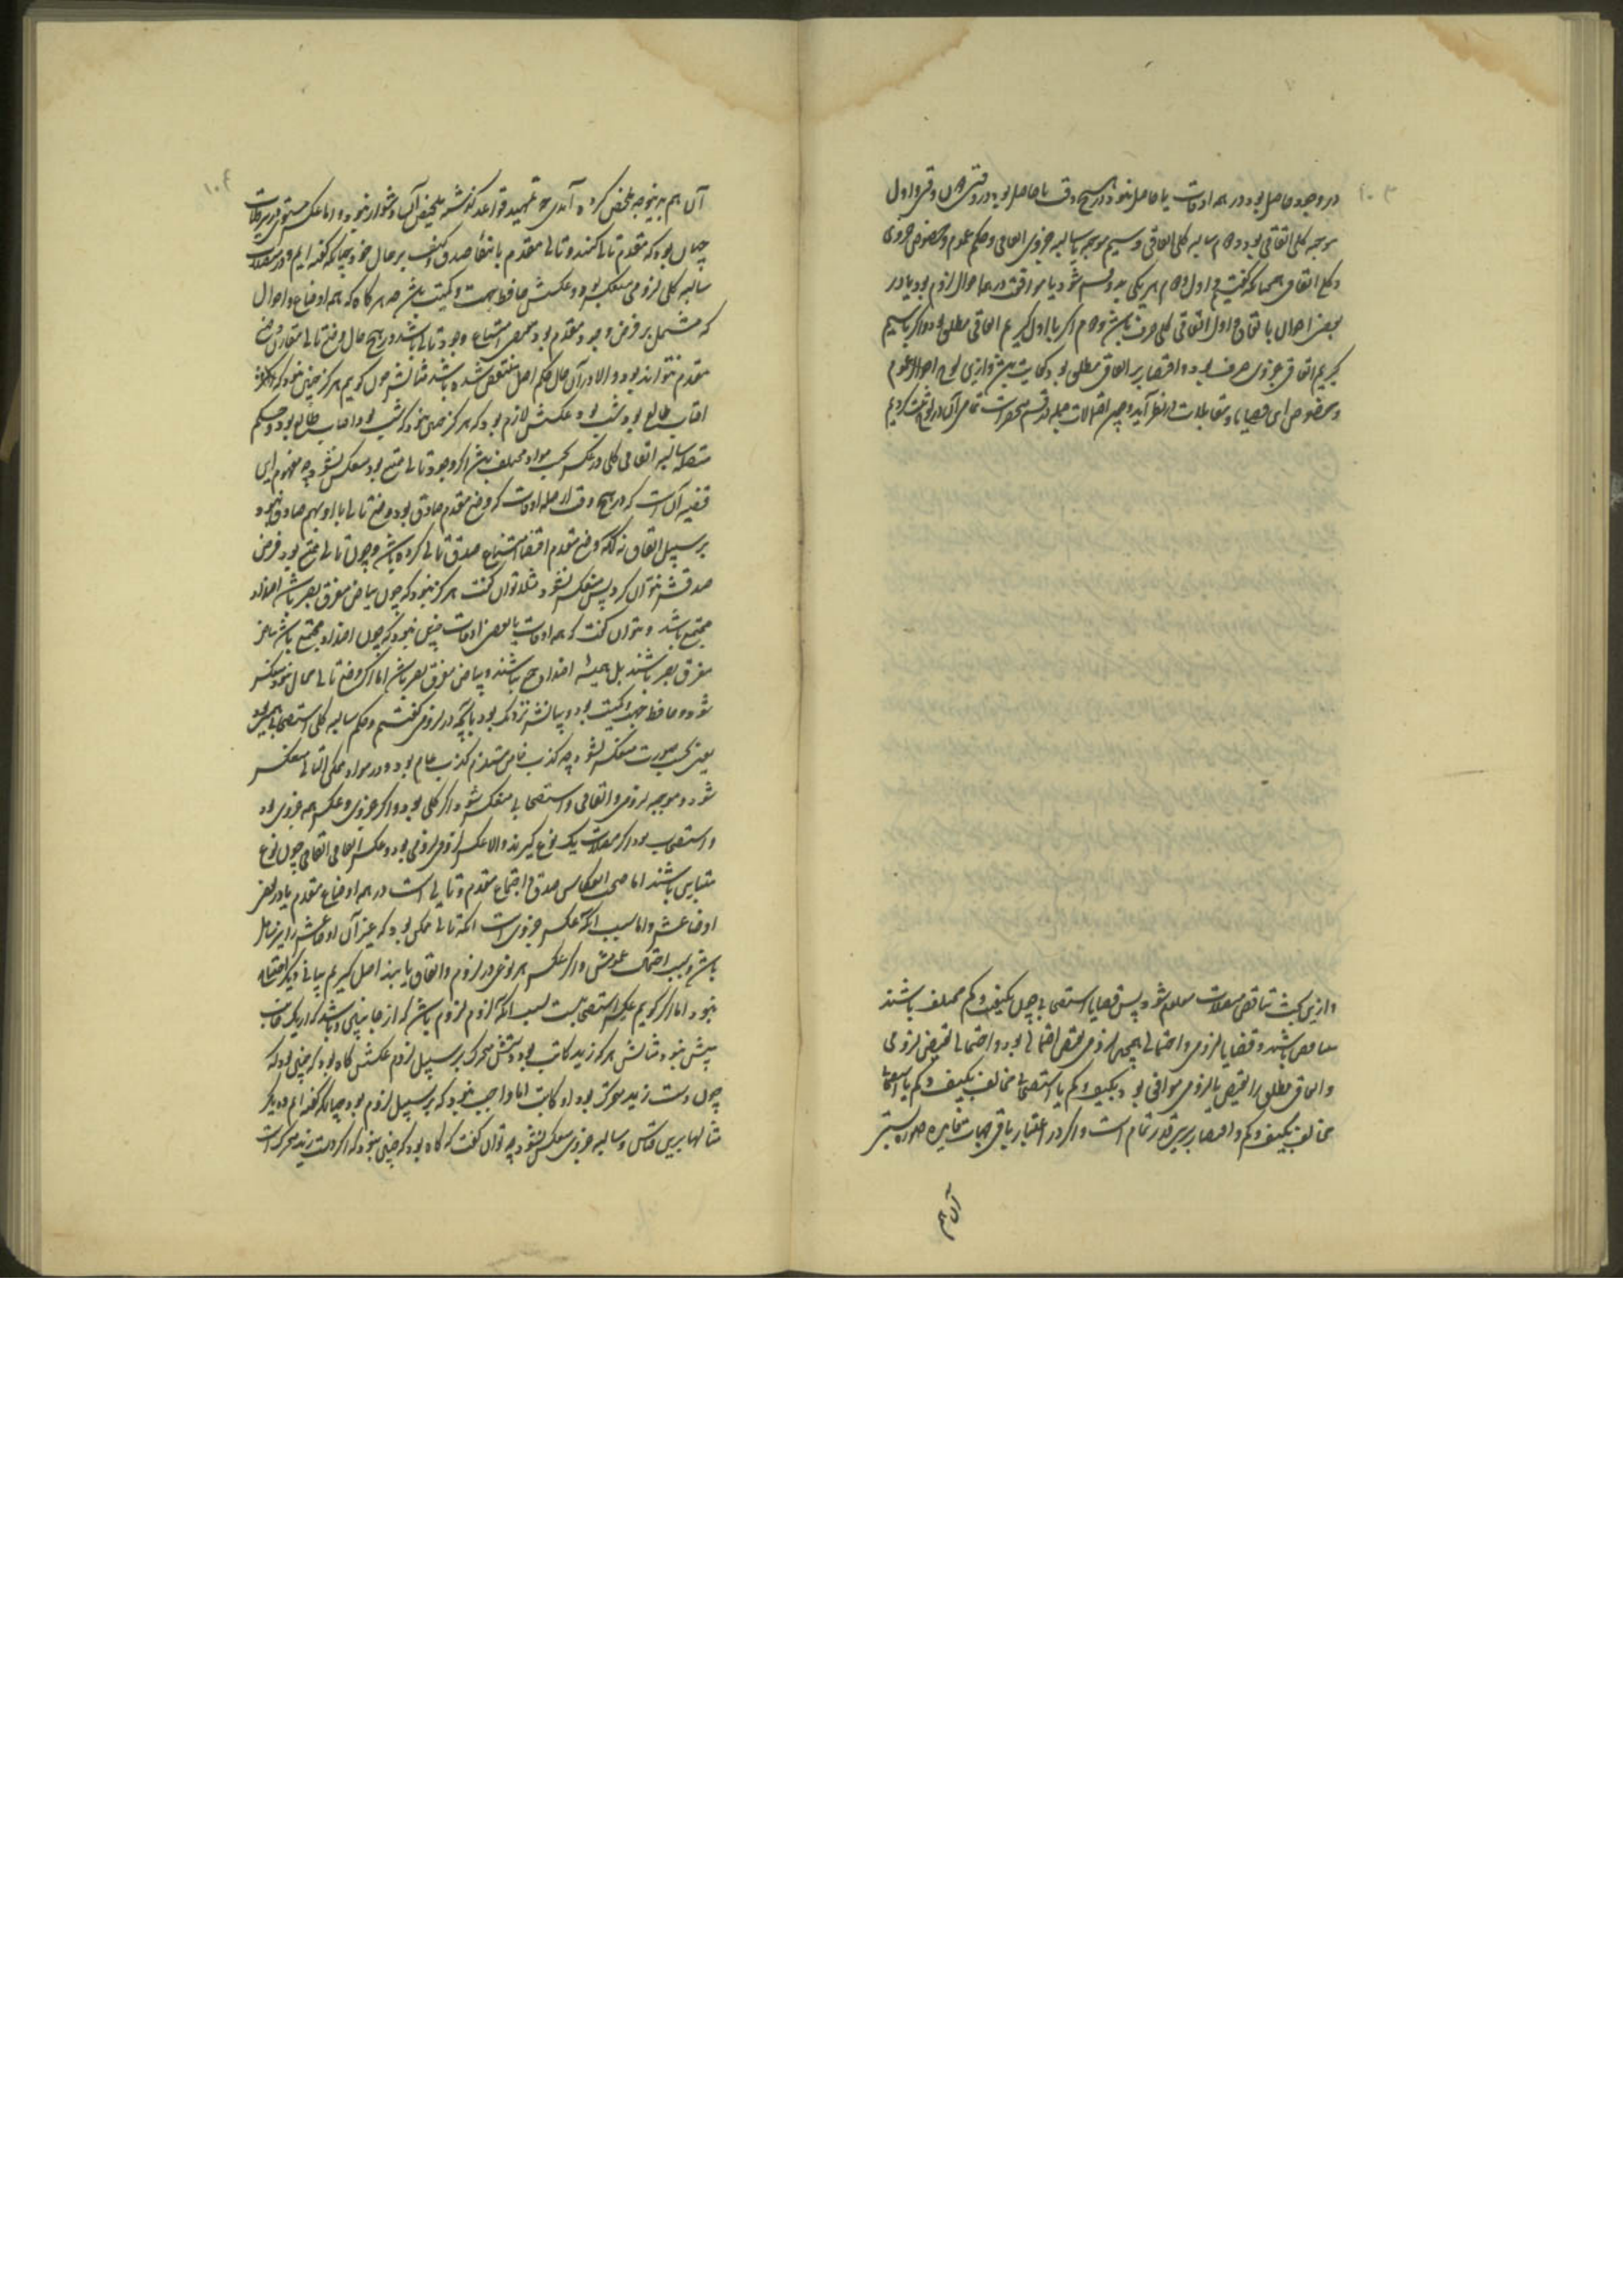 در وجود حاصل بود در همه اوقات یا حاصل نبود در هیچ وقت یا حاصل بود در وقتی دون وقتی و اول
موجبه کلی اتفاقی بود و دوم سالبه کلی اتفاقی و سیم موجبه یا سالبه جزوی اتفاقی و حکم عموم و خصوص جزوی
و کلی اتفاقی همچنانکه گفتیم و اول و دوم هر یکی به دو قسم شود یا موافق در همه احوال لزوم بود یا در
بعضی احوال با اتفاق و اول اتفاقی کلی صرف باشد و دوم اگر با اول گیریم اتفاقی مطلق بود و اگر با سیم
گیریم اتفاقی جزوی صرف بود و اقتصار بر اتفاقی مطلق بود کفایت باشد و ازین لوح احوال عموم
و خصوص این قضایا و تقابلات در نظر آید و چون اتصالات جمله در قسم محصورات تمامی آن در لوح ثبت کردیم
و ازین بحث تناقض متصلات معلوم شود پس قضایا استصحابی چون بکیف و کم مختلف باشند
متناقض باشند و قضایا لزومی و احتمالی همچنین لزومی نقیض احتمالی بود و احتمالی نقیض لزومی
و اتفاقی مطلق را نقیض یا لزومی موافق بود بکیف و کم یا استصحابی مخالف بکیف و کم یا استصحابی
مخالف بکیف و کم و اقتصار برین قدر تمام است و اگر در اعتبار باقی جهات متغایره ضرورتی
آن هم
آن هم برینوجه ملخص کرده آید چه تمهید قواعد گذشته تلخیص آن دشوار نبود و اما عکس مستوی در متصلات
چنان بود که مقدم تالی کنند و تالی مقدم با بقاء صدق و کیف بر حال خود چنانکه گفته ایم و در متصلات
سالبه کلی لزومی منعکس بود و عکسش حافظ جهت و کمیت باشد چه هر گاه که همه اوضاع و احوال
که مشتمل بر فرض وجود مقدم بود مقتضی امتناع وجود تالی باشد در هیچ حال وضع تالی مقارن وضع
مقدم نتواند بود و الا در آن حال حکم اصل منتقض شده باشد مثالش چون گوییم هرگز چنین نبود که اگر
آفتاب طالع بود شب بود عکسش لازم بود که هرگز چنین نبود که شب بود و آفتاب طالع بود و حکم
متصله سالبه اتفاقی کلی در عکس بحسب مواد مختلف باشد اگر وجود تالی ممتنع بود منعکس نشود چه مفهوم این
قضیه آنست که در هیچ وقت از جمله اوقات که وضع مقدم صادق بود وضع تالی با او بهم صادق نبود
بر سبیل اتفاق نه آنکه وضع مقدم اقتضاء امتناع صدق تالی کرده باشد و چون تالی ممتنع بود فرض
صدقش نتوان کرد پس منعکس نشود مثلا توان گفت هرگز نبود که چون بیاض مفرق بصر باشد اضداد
مجتمع باشد و نتوان گفت که همه اوقات یا بعضی اوقات چنین نبود که چون اضداد مجتمع باشد بیاض
مفرق بصر باشند بل همیشه اضداد جمع باشند و بیاض مفرق بصر باشد اما اگر وضع تالی محال نبود منعکس
شود و حافظ جهت و کمیت بود و بیانش نزدیک بود بآنچه در لزومی گفتیم و حکم سالبه کلی استصحابی همین بود
یعنی بحسب صورت منعکس نشود چه کذب خاص مستلزم کذب عام بود و در مواد ممکن التالی منعکس
شود و موجبه لزومی و اتفاقی و استصحابی منعکس شود اگر کلی بود و اگر جزوی و عکس همه جزوی بود
و استصحابی بود اگر متصلات یک نوع گیرند و الا عکس لزومی لزومی بود و عکس اتفاقی اتفاقی چون دو نوع
متباین باشند اما صحت انعکاس صدق و اجتماع مقدم و تالی است در همه اوضاع مقدم یا در بعضی
اوضاعش و اما سبب آنکه عکس جزویست آنکه تالی ممکن بود که غیر آن اوضاعش را نیز شامل
باشد و بسبب احتمال عمومش و اگر عکس هر نوعی در لزوم و اتفاق یا بمذ اصل گیریم بیانی دیگر احتیاج
نبود اما اگر گوییم عکس استصحابیست بسبب آنکه لزوم لزوم باشد که از جانبین و باشد که از یک جانب
بیش نبود مثالش هر گه زید کاتب بود دستش متحرک بر سبیل لزوم عکسش گاه بود که چنین بود که
چون دست زید متحرک بود او کاتب اما واجب نبود که بر سبیل لزوم بود چنانکه گفته ایم و دیگر
مثالها برین قیاس و سالبه جزوی منعکس نشود چه توان گفت که گاه بود که چنین نبود که اگر دست زید متحرک است